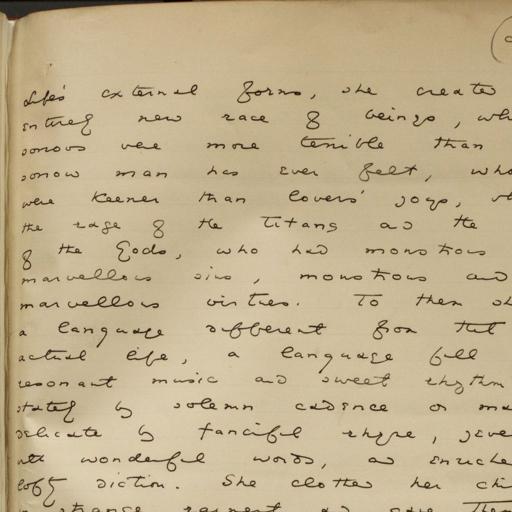 Life's external forms, she creates
entirely new race of beings, wh
sorrows were more terrible than
sorrow man has ever felt, who
were keener than lovers' joys, wh
the rage of the Titans and the
of the Gods, who had monstrous
marvellous sins, monstrous and
marvellous virtues. To them sh
a language different from that
actual life, a language full
resonant music and sweet rhythm
stately by solemn cadence or ma
delicate by fanciful rhyme, jewe
with wonderful words, and enriche
lofty diction. She clothed her chi
strange raiment and gave them